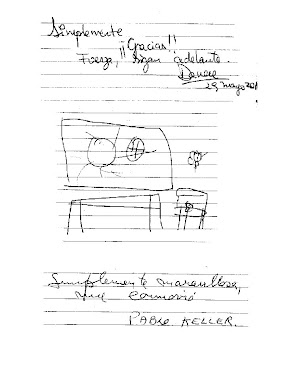 Simplemente
¡¡Gracias!!
Fuerza, Sigan adelante.
29, Mayo
Simplemente maravilloso,
me conmovió
PABLO KELLER.